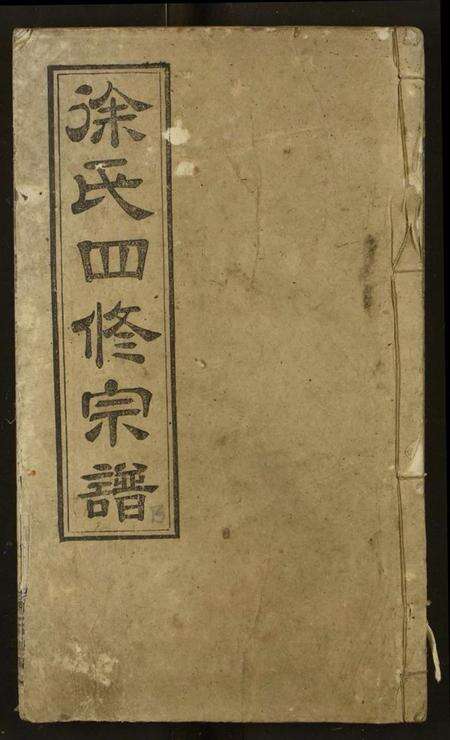 徐氏四修宗譜
13